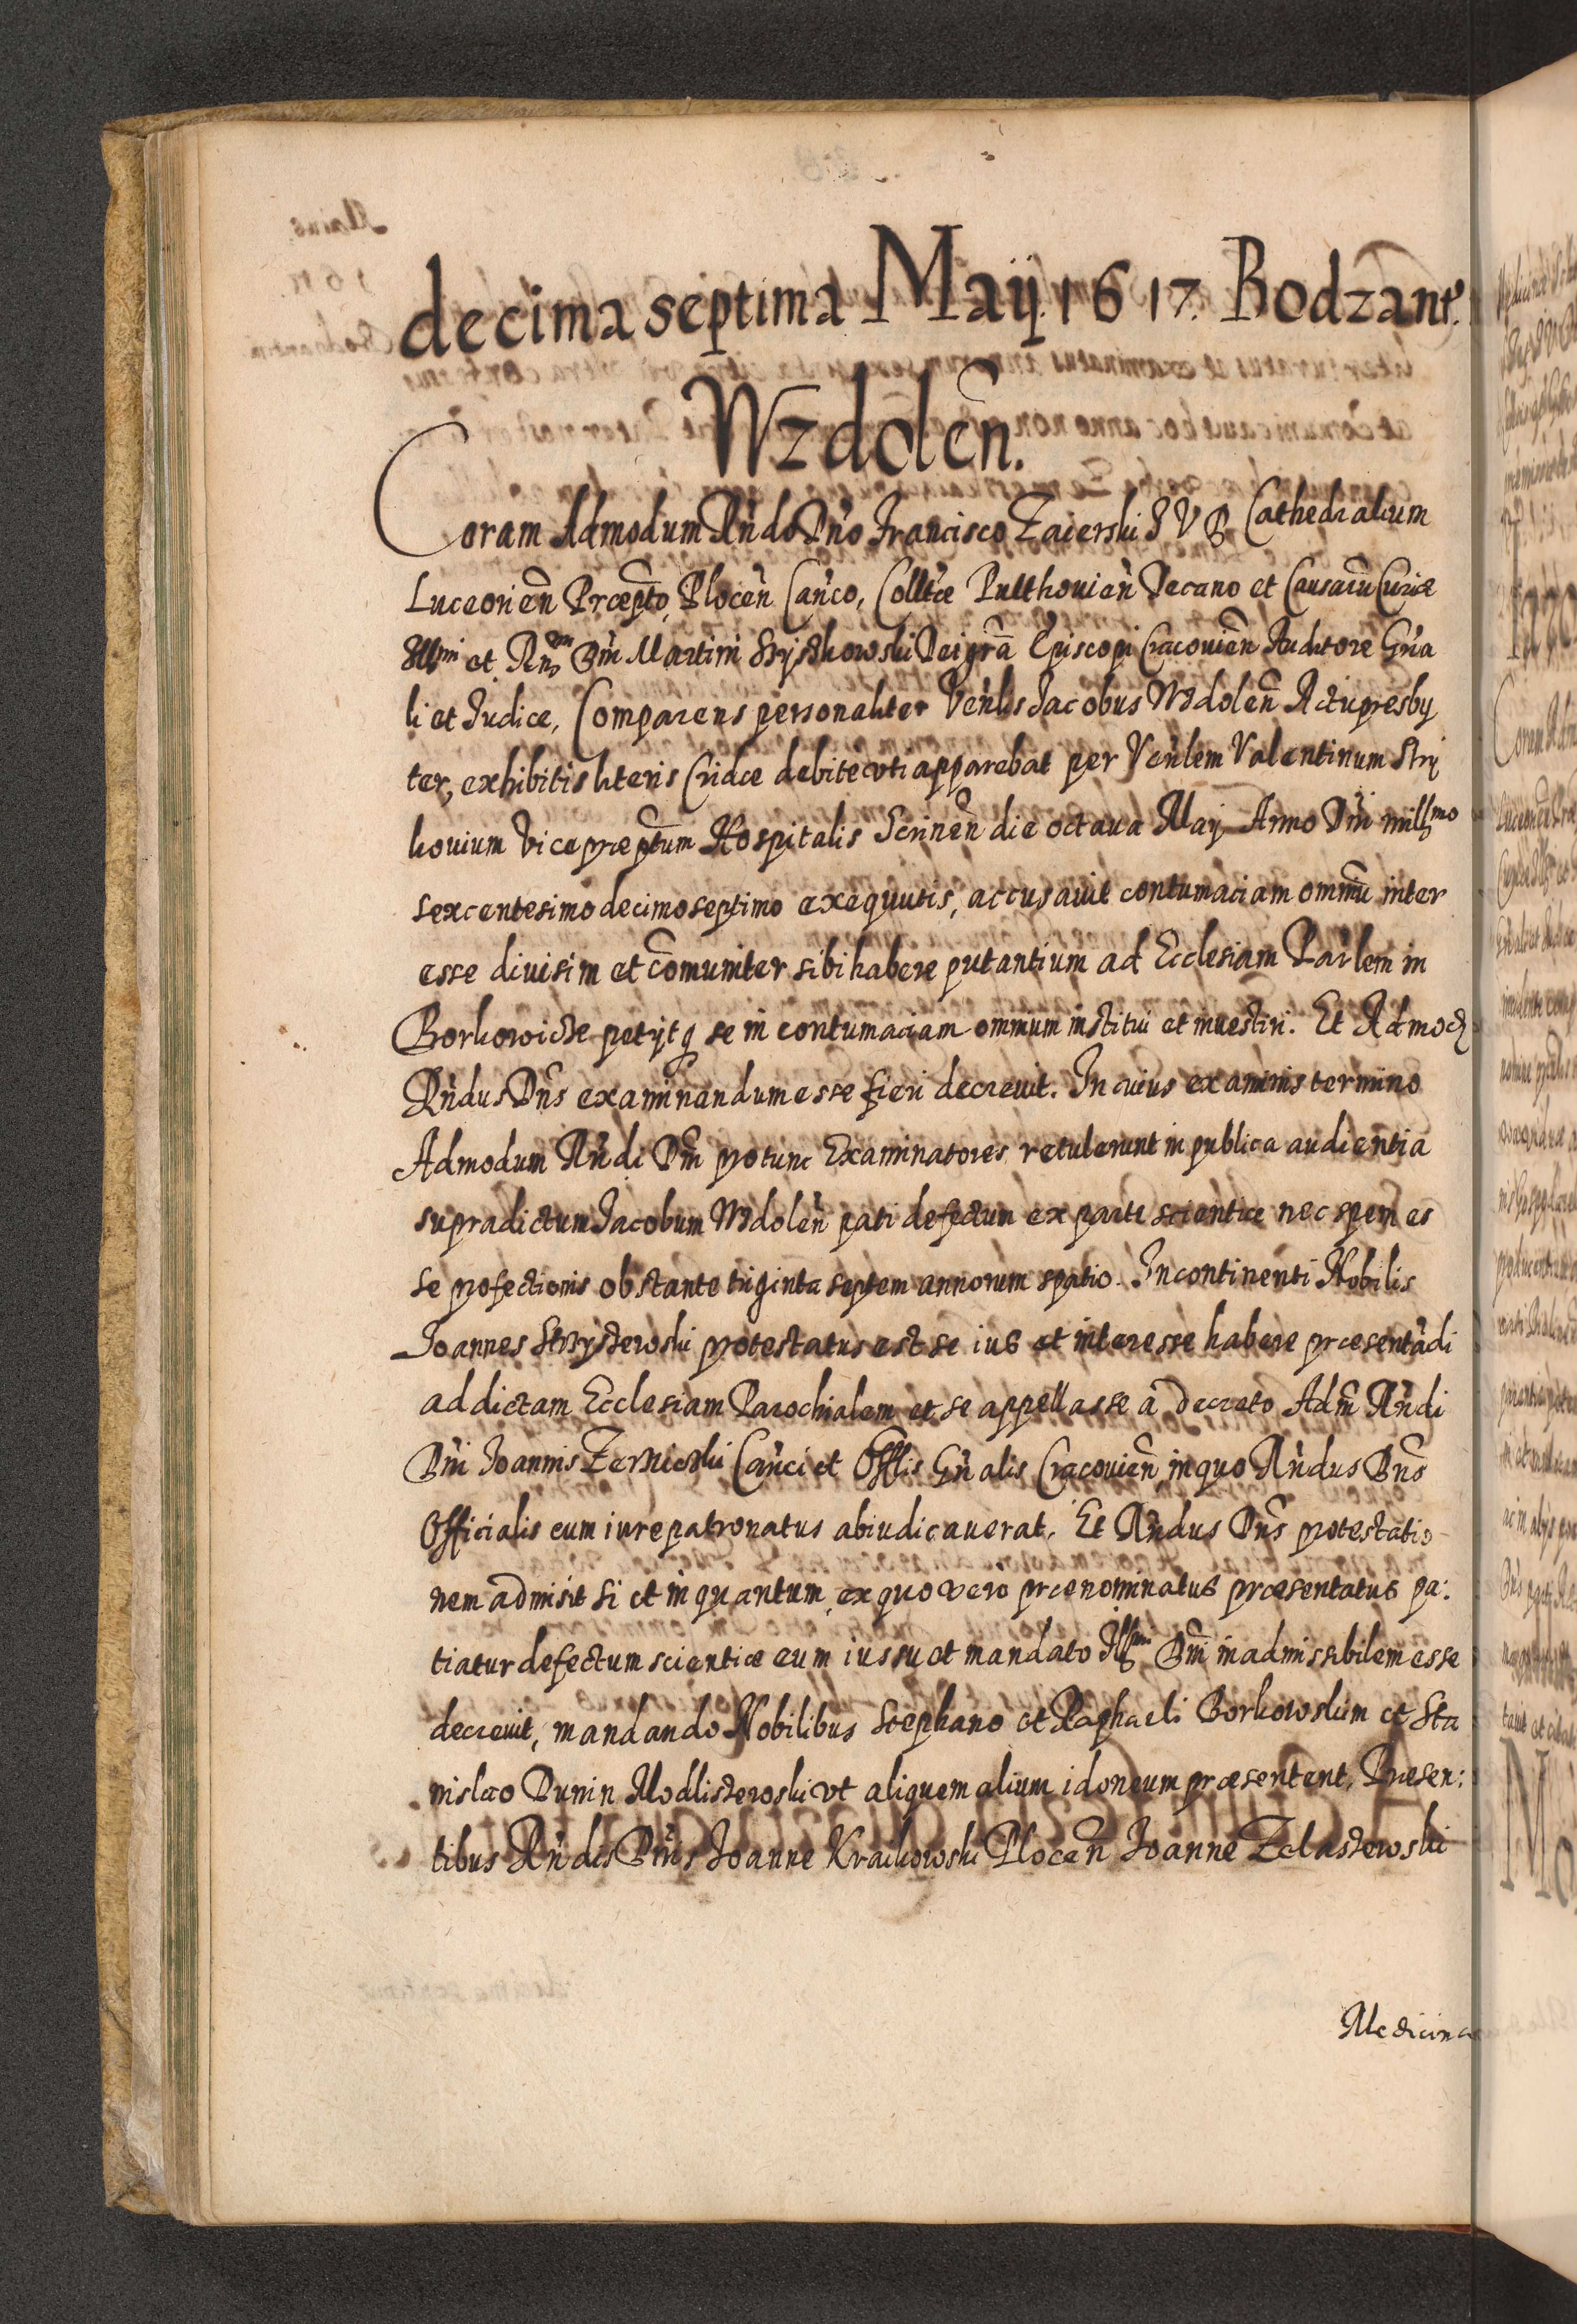 decima septima Maij. 1617. Bodzant.
Wzdolen̄.
Coram Admodum Rndo Dno Francisco Zaierski I V D Cathedralium
Luceorien̄ Præpto, Plocen̄ Canco, Colltæ Pulthouien̄ Decano et Causarū Curiæ
Illmi et Rndmi Dni Martini Szyszkowski Dei gra̅ Episcopi Cracouien̄ Auditore Gn̄a
li et Iudice, Comparens personaliter Venlis Iacobus Wzdolen̄ Actupresby
ter, exhibitis literis Cridæ debite vti apparebat per Venlem Valentinum
kouium vicepræptum Hospitalis die octaua Maij Anno Dni millmo
sexcentesimo decimoseptimo exequutis, accusauit contumaciam omniū inter
esse diuisim et com̄uniter sibi habere putantium ad Ecclesiam Parlem in
Borkowicze petijtq se in contumaciam omnium institui et inuestiri. Et Admod
Rndus Dns examinandum esse fieri decreuit. In cuius examinis termino
Admodum Rndi Dni protunc Examinatores retulerunt in publica audientia
supradictum Iacobum Wzdolen̄ pati defectum ex parte scientiæ nec spem es
se profectionis obstante triginta septem annorum spatio. Incontinenti Nobilis
Ioannes protestatus est se ius et interesse habere præsentādi
ad dictam Ecclesiam Parochialem et se appellasse a decreto Adm̄ Rndi
Dni Ioannis Canci et Offlis Gn̄alis Cracouien̄, in quo Rndus Dns
Officialis eum iure patronatus abiudicauerat. Et Rndus Dns protestatio
nem admisit si et in quantum, ex quo vero prænominatus præsentatus pa:
tiatur defectum scientiæ eum iussu et mandato Illmi Dni inadmissibilem esse
decreuit, mandando Nobilibus Stephano et Raphaeli Borkowskim et Sta
nislao Dunin Modliszewski vt aliquem alium idoneum præsentent. Præsen:
tibus Rndis Dnis Ioanne Kraikowski Plocen̄ Ioanne Zelaszewski
Medicinæ